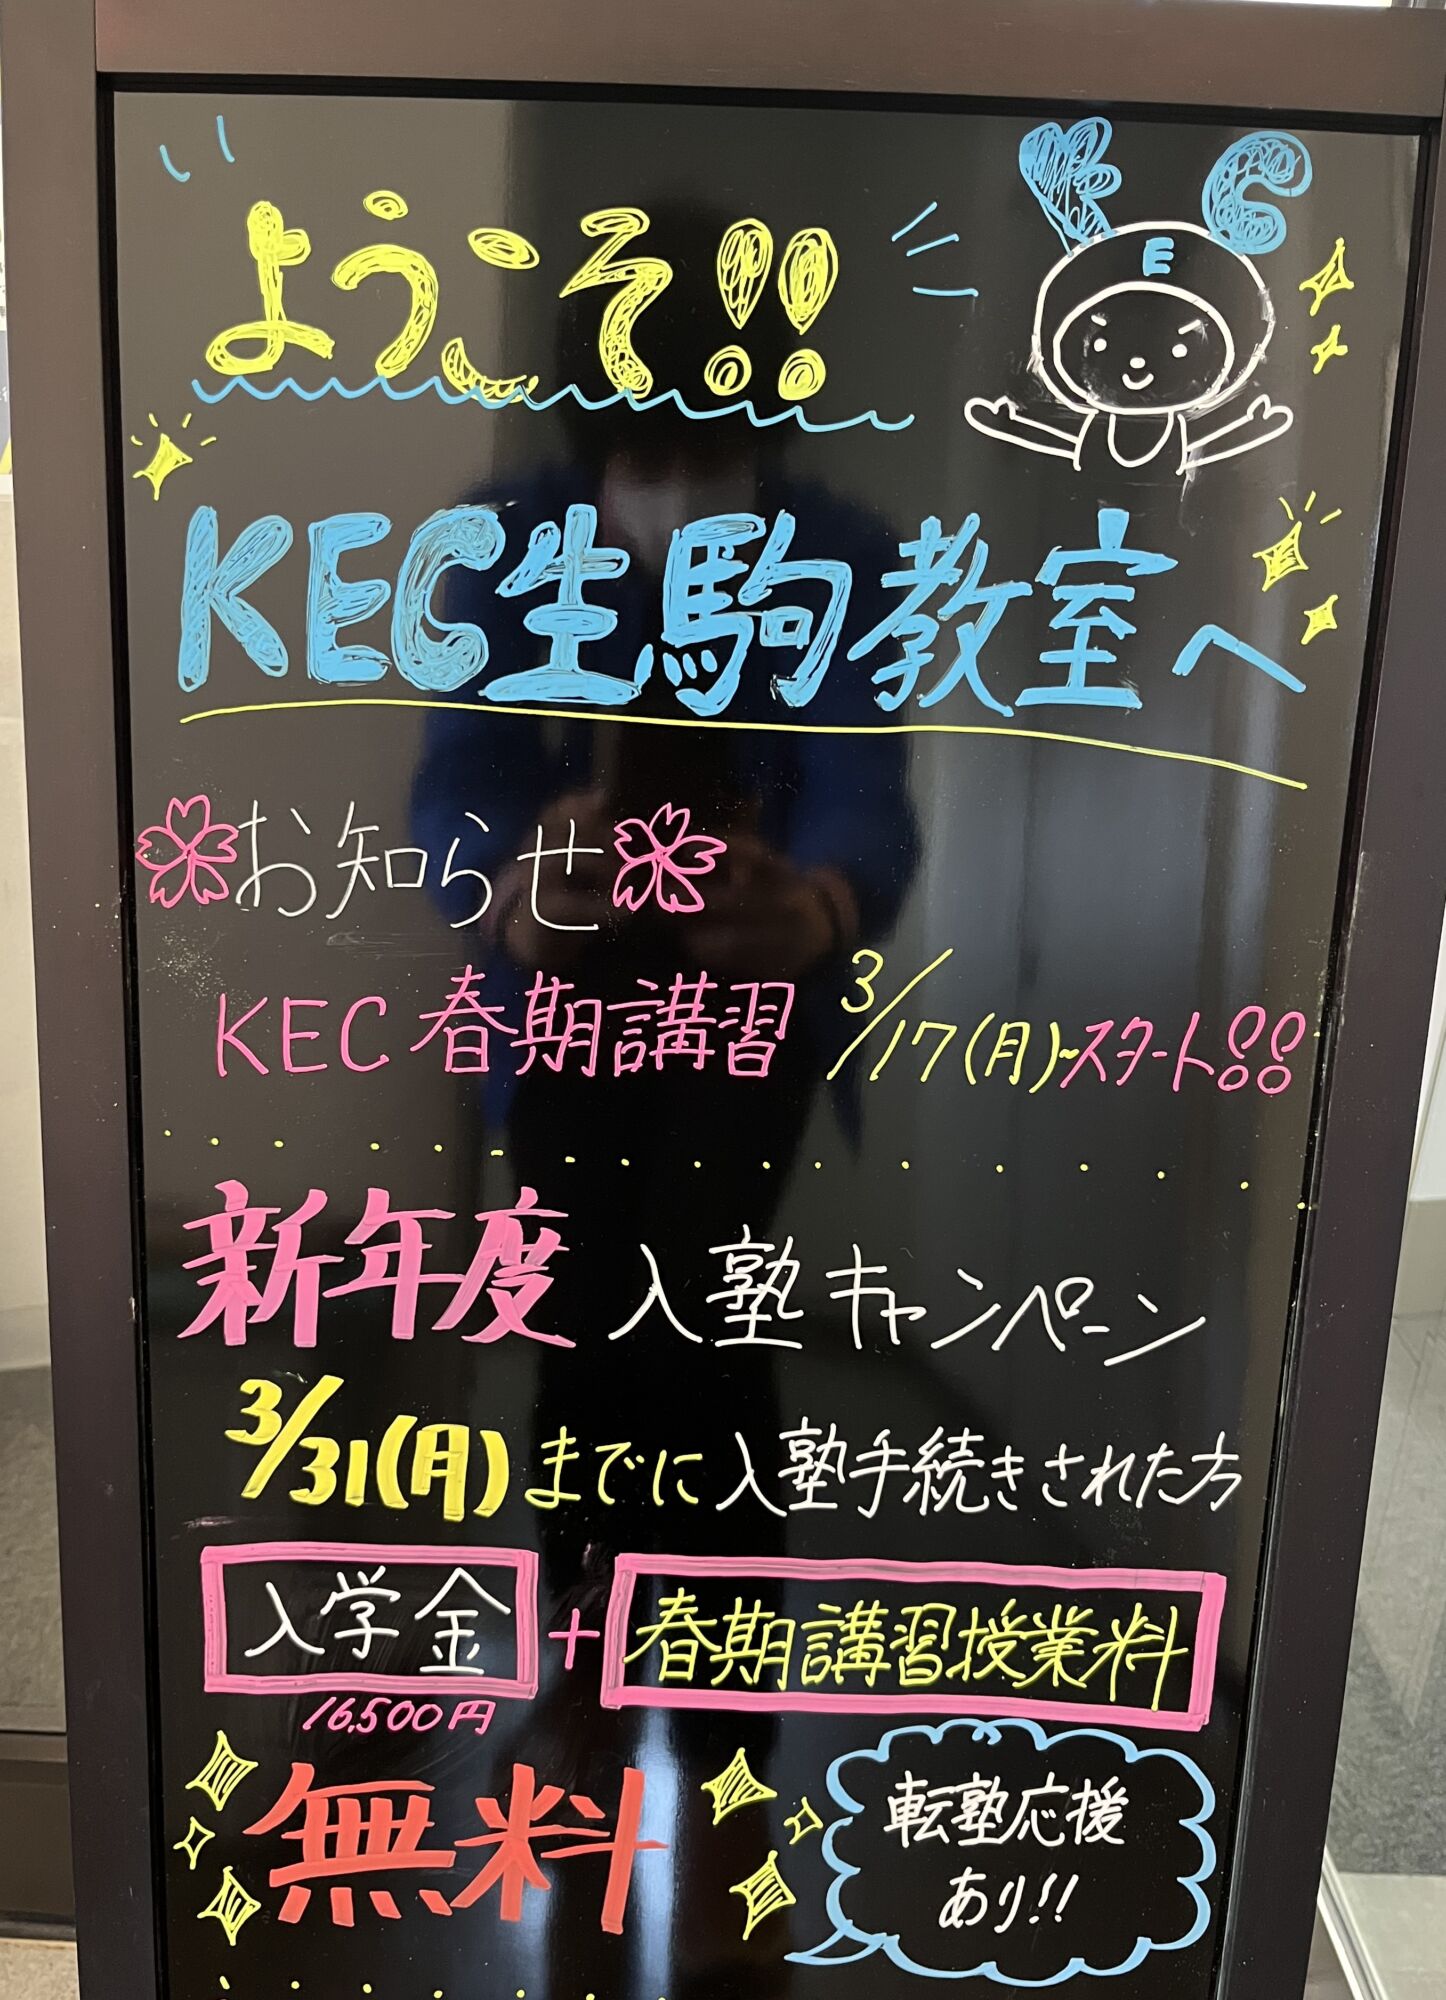 ようこそ!!
K C
E
KEC生駒教室へ
お知らせ
KEC 春期講習 3/17(月)~スタート!!
新年度 入塾キャンペーン
3/31(月)までに入塾手続きされた方
入学金 + 春期講習授業料
16,500円
無料
転塾応援
あり!!